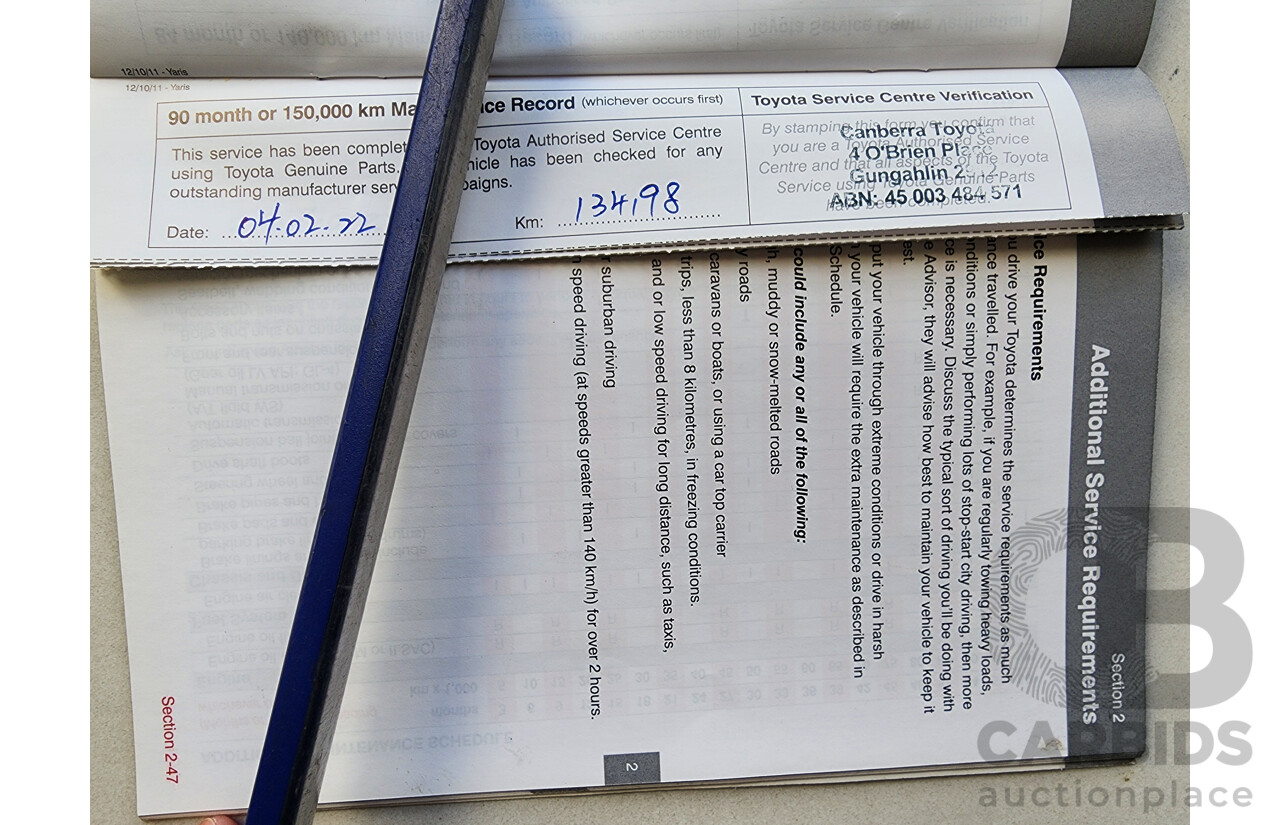 12/10/11 - Yaris
12/10/11 - Yaris
90 month or 150,000 km Ma
ce Record (whichever occurs first)
Toyota Service Centre Verification
This service has been complet
Toyota Authorised Service Centre
using Toyota Genuine Parts.
hicle has been checked for any
outstanding manufacturer ser
paigns.
Date: 04.02.22
Km: 134198
By stamping this form you confirm that
you are a Toyota Authorised Service
Centre and that all aspects of the Toyota
Service using Toyota Genuine Parts
have been completed.
Canberra Toyota
4 O'Brien Place
Gungahlin 2
ABN: 45 003 484 571
Section 2
Additional Service Requirements
ce Requirements
ou drive your Toyota determines the service requirements as much
ance travelled. For example, if you are regularly towing heavy loads,
nditions or simply performing lots of stop-start city driving, then more
ce is necessary. Discuss the typical sort of driving you'll be doing with
e Advisor, they will advise how best to maintain your vehicle to keep it
est.
put your vehicle through extreme conditions or drive in harsh
your vehicle will require the extra maintenance as described in
Schedule.
could include any or all of the following:
h, muddy or snow-melted roads
y roads
caravans or boats, or using a car top carrier
trips, less than 8 kilometres, in freezing conditions.
and or low speed driving for long distance, such as taxis,
r suburban driving
h speed driving (at speeds greater than 140 km/h) for over 2 hours.
2
Section 2-47
CB
CARBIDS
auctionplace